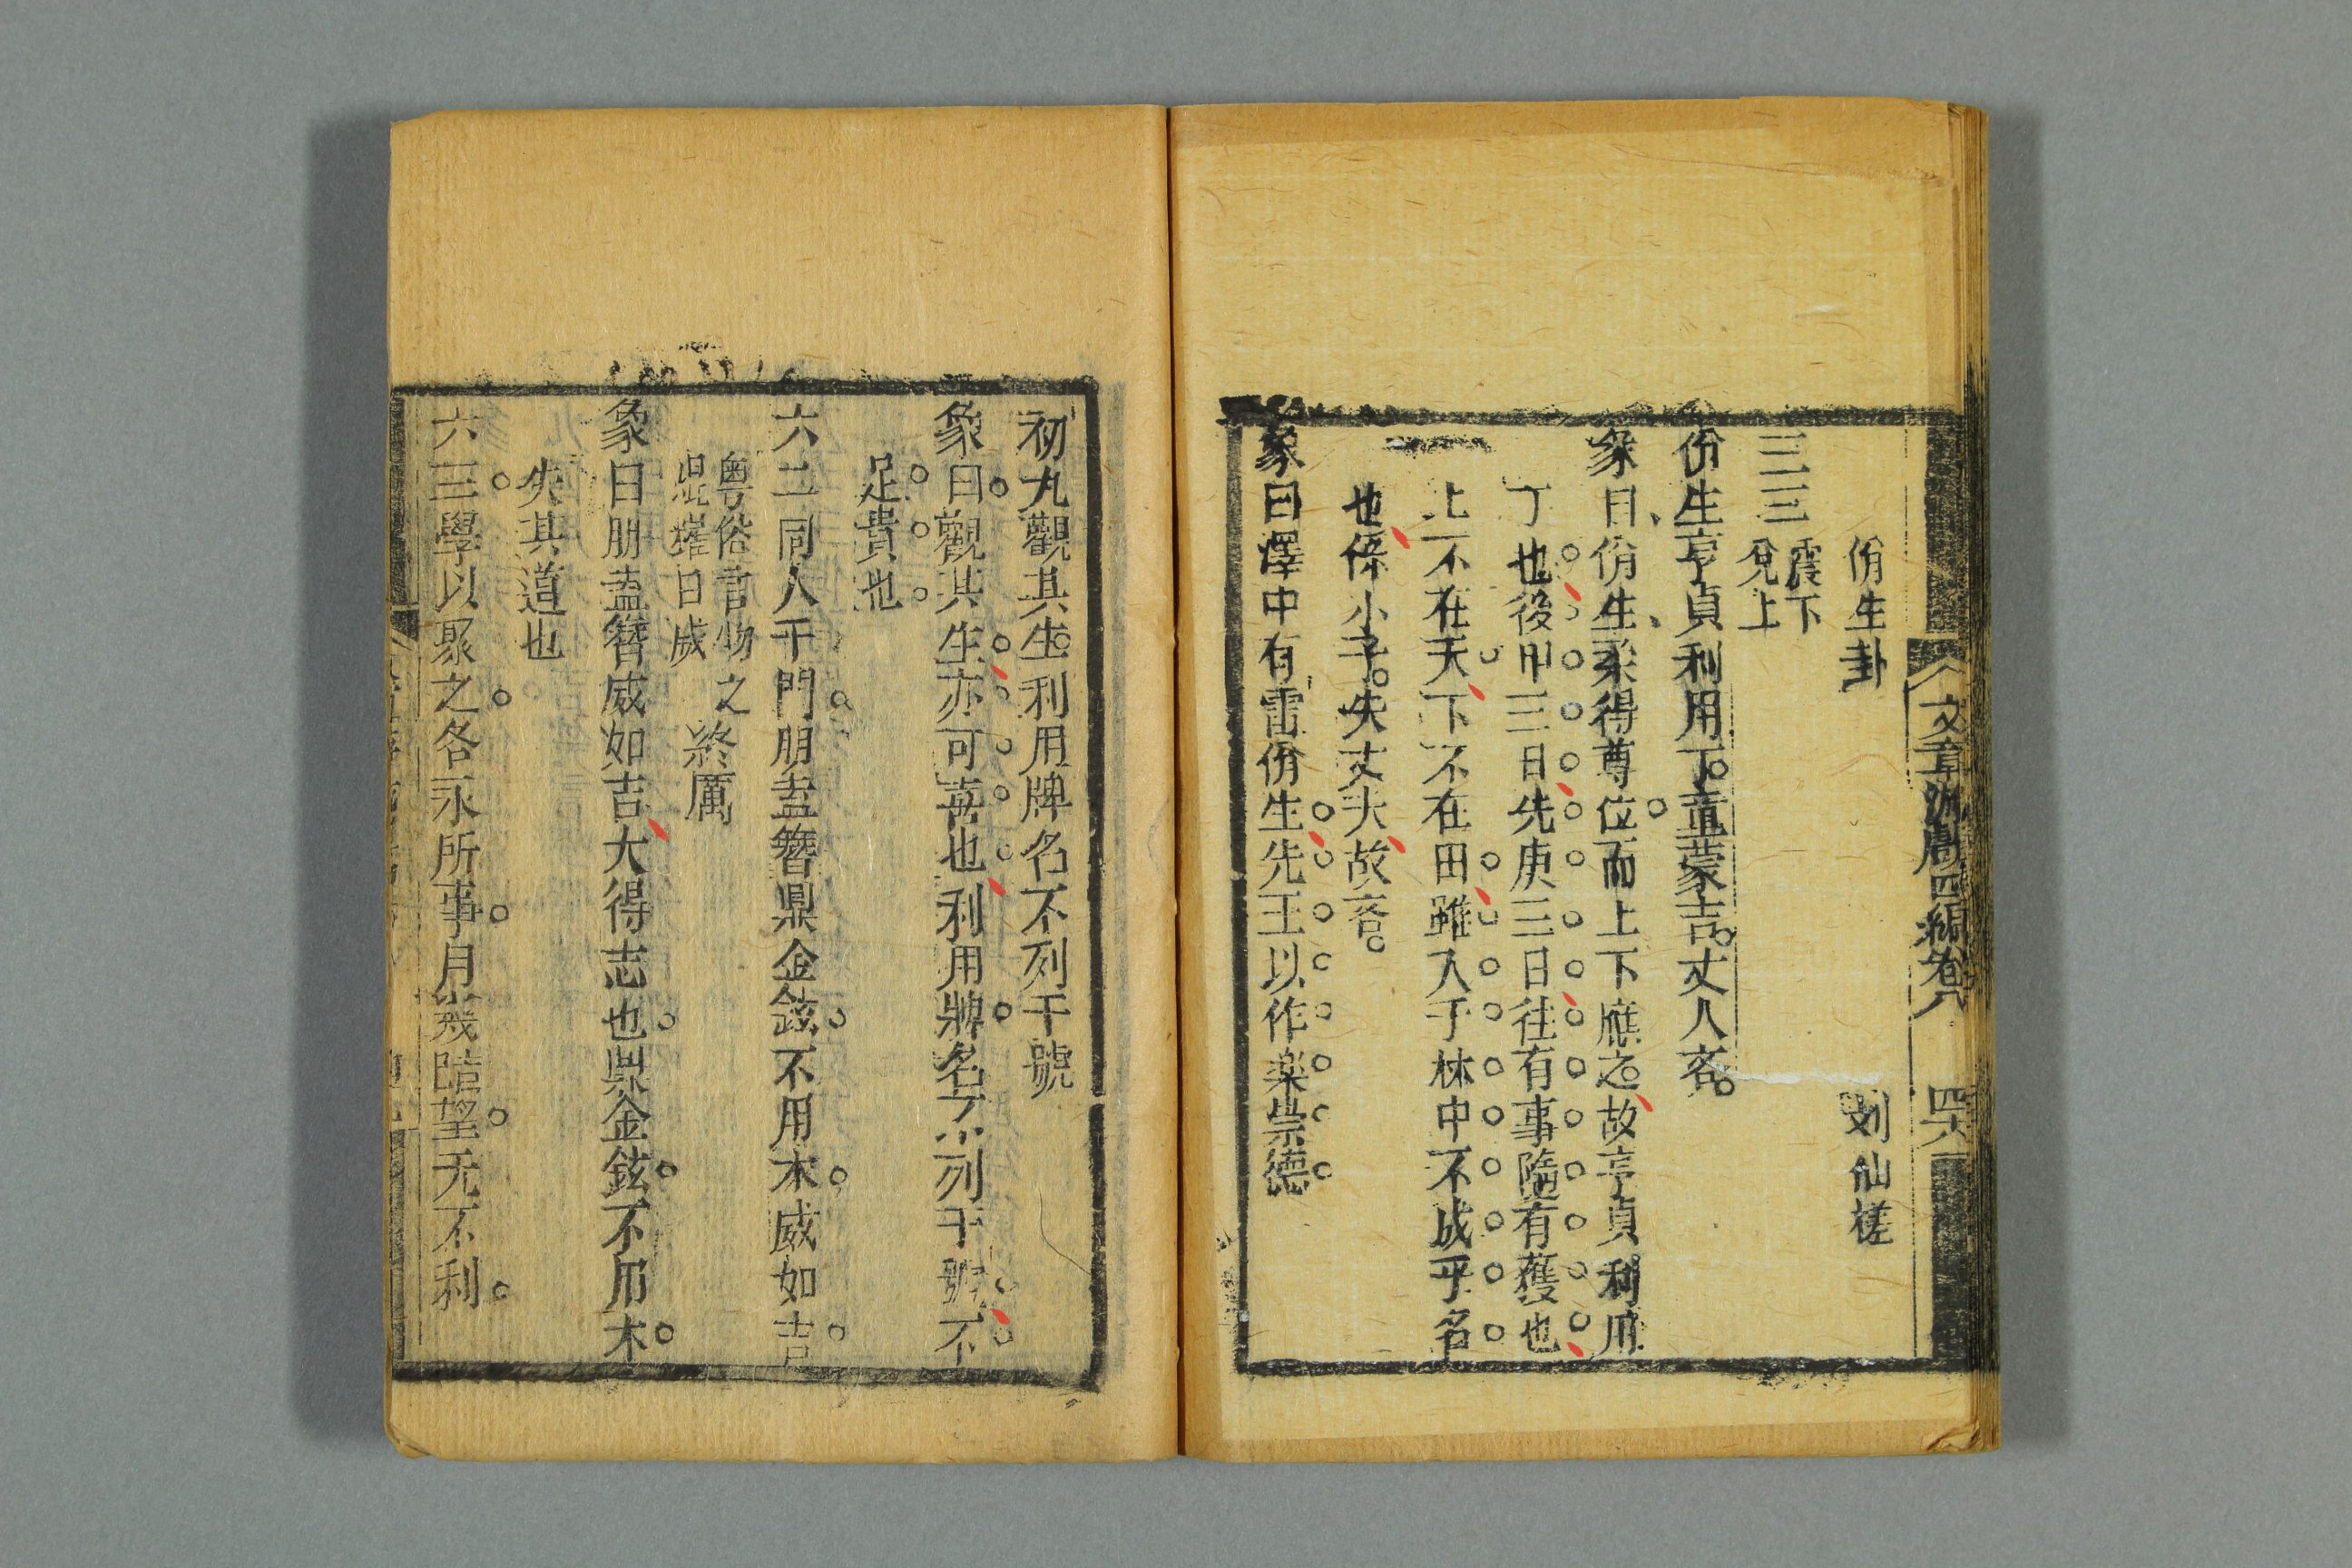 文章遊戲四編卷八 四六
佾生卦 刘仙槎
三三 震下
兌上
佾生亨貞利用下童蒙吉丈人吝
彖曰佾生柔得尊位而上下應之故亨貞利用
丁也後甲三日先庚三日往有事隨有獲也
上不在天下不在田雖入于林中不成乎名
也係小子失丈夫故吝
象曰澤中有雷佾生先王以作楽崇德
初九觀其生利用牌名不列于號
象曰觀其生亦可喜也利用牌名不列于號不
足貴也
六二同人于門朋盍簪鼎金鉉不用木威如吉
粵俗言物之
日威
終厲
象曰朋盍簪威如吉大得志也鼎金鉉不用木
失其道也
六三學以聚之各示所事月幾望无不利